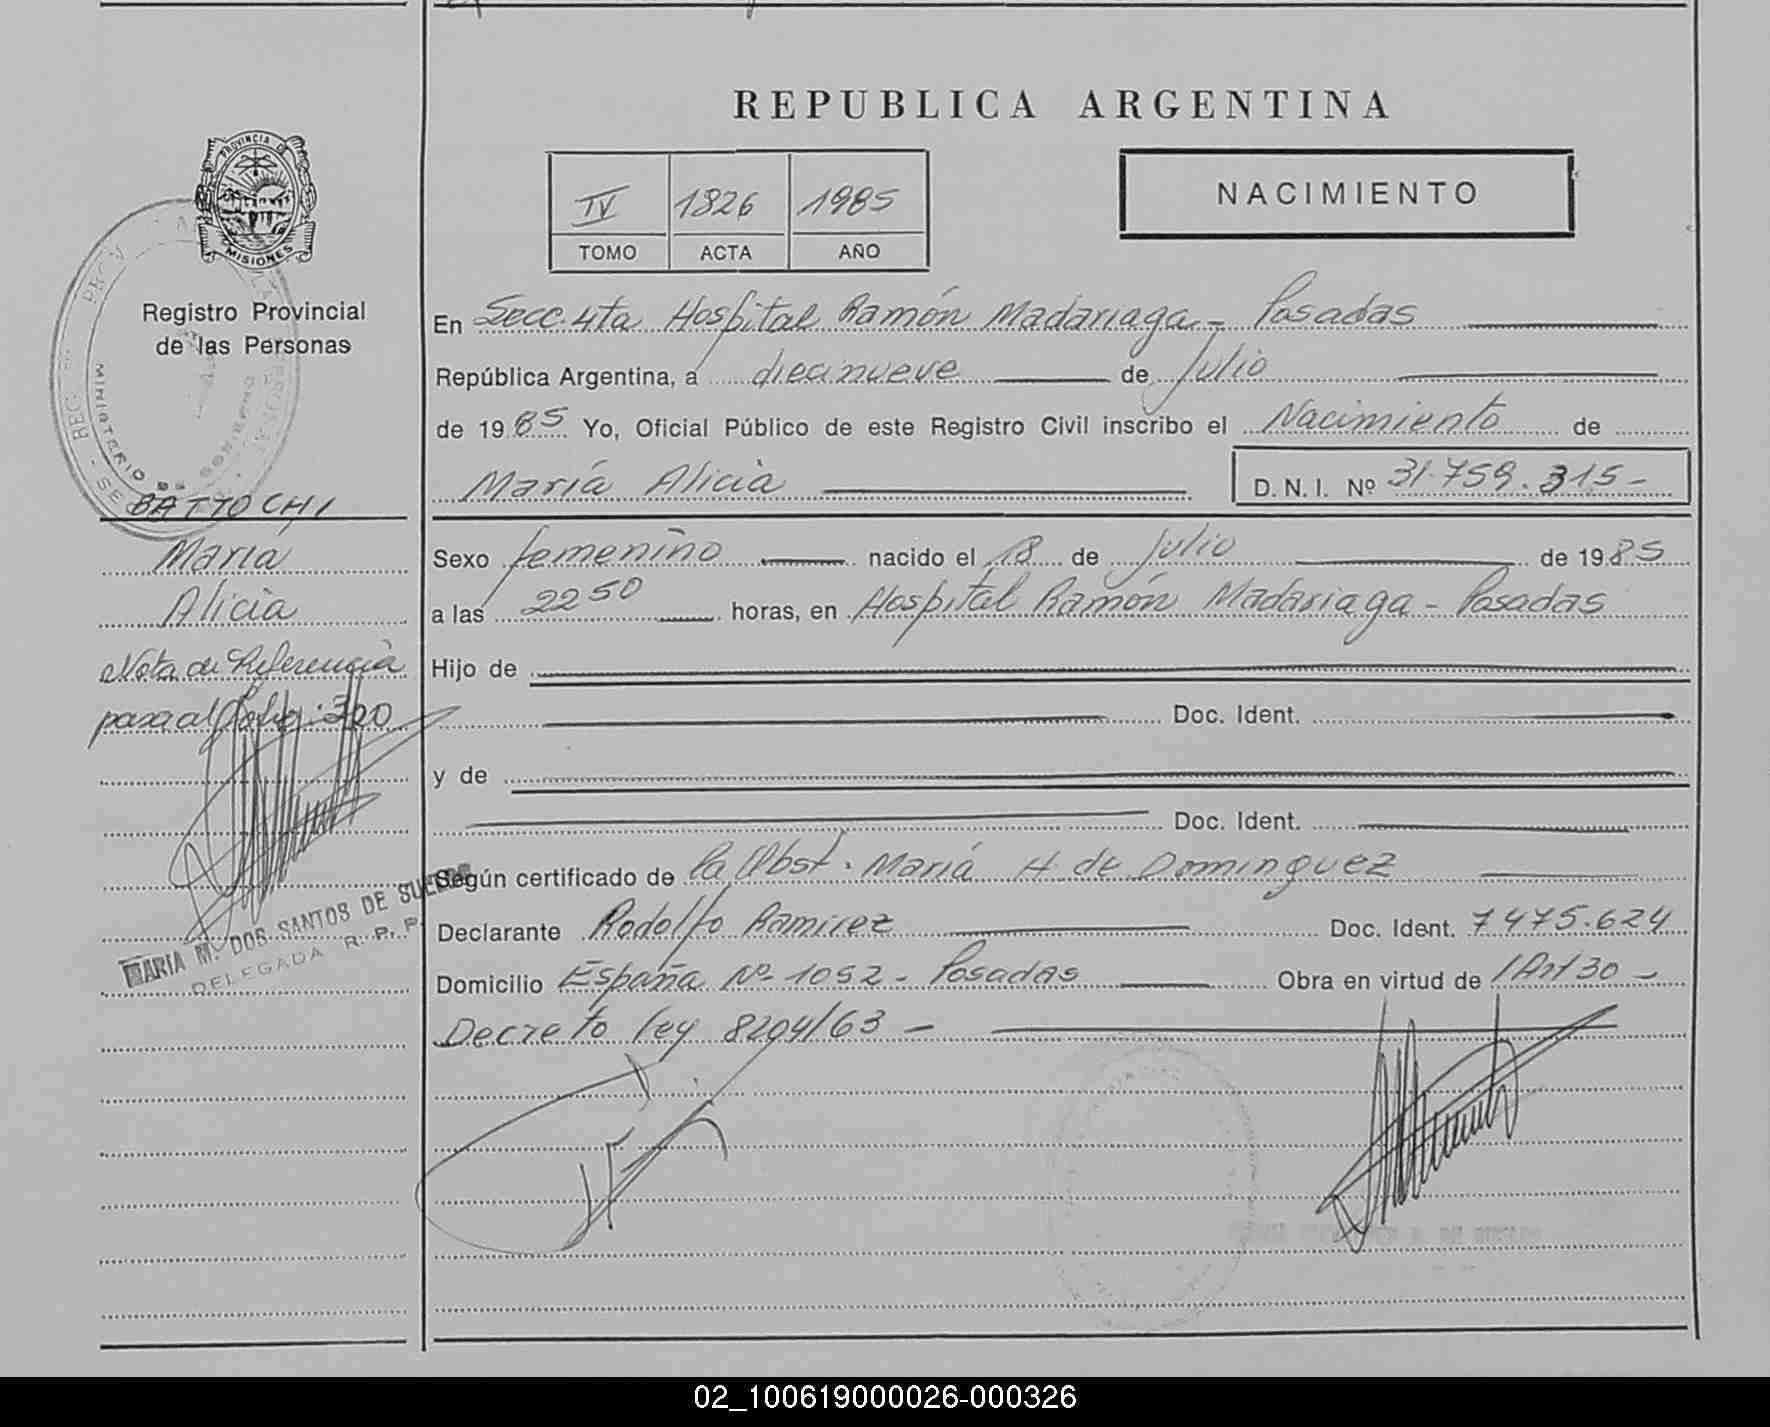 REPUBLICA ARGENTINA
PROVINCIA DE
MISIONES
Registro Provincial
de las Personas
IV 1326 1985
TOMO ACTA AÑO
NACIMIENTO
En Secc. 4ta Hospital Ramón Madariaga - Posadas
República Argentina, a diecinueve de Julio
de 1985 Yo, Oficial Público de este Registro Civil inscribo el Nacimiento de
María Alicia D.N.I. Nº 31.759.315-
BATTOCHI
María
Alicia
Nota de Referencia
pasa al folio: 320
MARIA M. DOS SANTOS DE SUELDO
DELEGADA R. P. P.
Sexo femenino nacido el 18 de Julio de 1985
a las 22 50 horas, en Hospital Ramón Madariaga - Posadas
Hijo de
Doc. Ident.
y de
Doc. Ident.
Según certificado de la Obst. María H. de Dominguez
Declarante Rodolfo Ramirez Doc. Ident. 7475.624
Domicilio España Nº 1052 - Posadas Obra en virtud de / Art 30 -
Decreto ley 8204/63 -
02_100619000026-000326